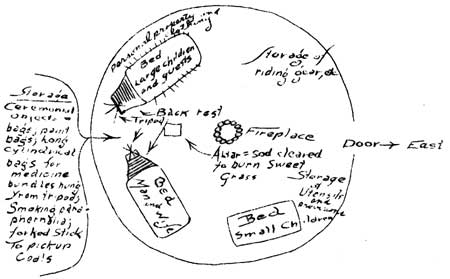 Storage
Ceremonial
objects -
bags, paint
bags, hang
cylindrical
bags for
medicine
bundles hung
from tripods,
Smoking para-
phernalia,
forked stick
To pick up
Coals
personal property and
clothing
Bed
Large children
and guests
Tripod
Back rest
Bed
Man and Wife
Fireplace
Altar = Sod cleared
to burn Sweet
Grass
Storage of
riding gear, etc
Door → East
Storage
of
Utensils
and
provisions
Bed
Small Children